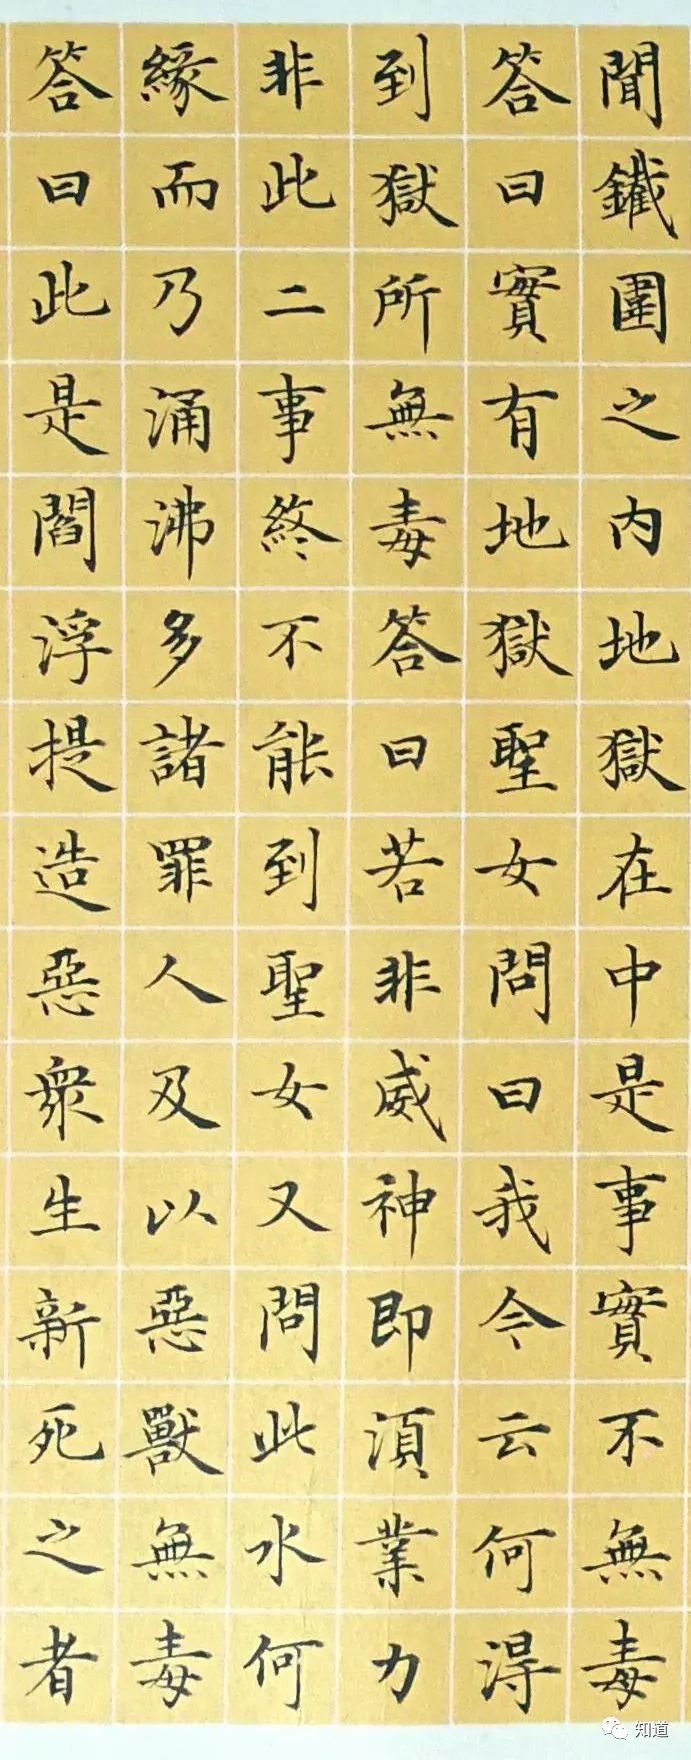 聞鐵圍之内地獄在中是事實不無毒
答曰實有地獄聖女問曰我今云何淂
到獄所無毒答曰若非威神即湏業力
非此二事終不能到聖女又問此水何
緣而乃涌沸多諸罪人及以惡獸無毒
答曰此是閻浮提造惡衆生新死之者
知道